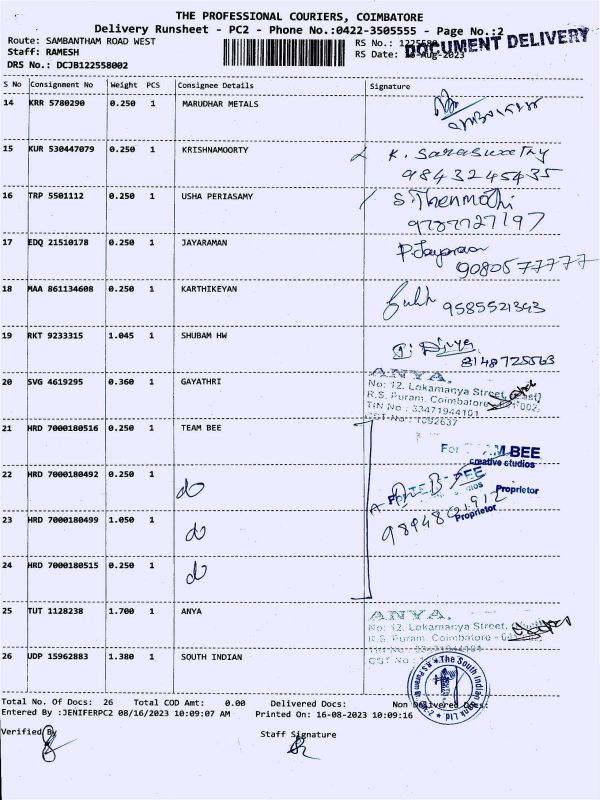 THE PROFESSIONAL COURIERS, COIMBATORE
Delivery Runsheet - PC2 - Phone No.:0422-3505555 - Page No.:2
Route: SAMBANTHAM ROAD WEST
RS No.:
DOCUMENT DELIVERY
Staff: RAMESH
RS Date: -Aug-2023
DRS No.: DCJB122558002
S No Consignment No Weight PCS Consignee Details Signature
14 KRR 5780290 0.250 1 MARUDHAR METALS
15 KUR 530447079 0.250 1 KRISHNAMOORTY K. Saraswathy
9843245435
16 TRP 5501112 0.250 1 USHA PERIASAMY S. Thenmozhi
9787727197
17 EDQ 21510178 0.250 1 JAYARAMAN P. Jayaraman
9080577777
18 MAA 861134608 0.250 1 KARTHIKEYAN
9585521343
19 RKT 9233315 1.045 1 SHUBAM HW Divya
8148725563
20 SVG 4619295 0.360 1 GAYATHRI ANYA.
No: 12, Lokamanya Street,
R.S. Puram, Coimbatore - 641 002.
TIN No : 33471944101
CST No : 1092637
21 HRD 7000180516 0.250 1 TEAM BEE For TEAM BEE
creative studios
22 HRD 7000180492 0.250 1 do
Proprietor
23 HRD 7000180499 1.050 1 do 9894821912
Proprietor
24 HRD 7000180515 0.250 1 do
25 TUT 1128238 1.700 1 ANYA ANYA.
No: 12, Lokamanya Street,
R.S. Puram, Coimbatore -
TIN No : 33471944101
CST No :
26 UDP 15962883 1.380 1 SOUTH INDIAN The South Indian Bank Ltd
Total No. Of Docs: 26 Total COD Amt: 0.00 Delivered Docs: Non Delivered Docs:
Entered By :JENIFERPC2 08/16/2023 10:09:07 AM Printed On: 16-08-2023 10:09:16
Verified By Staff Signature